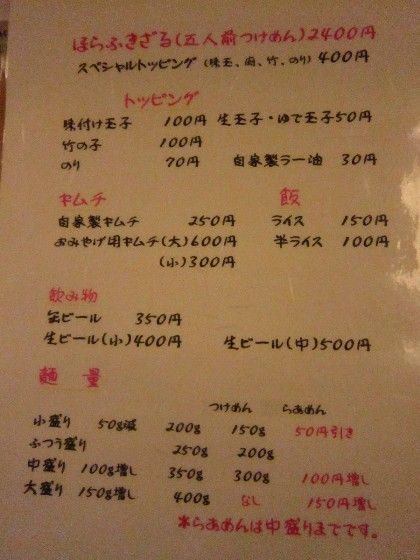 ほらふきざる(五人前つけめん)2400円
スペシャルトッピング(味玉、肉、竹、のり)400円
トッピング
味付け玉子 100円 生玉子・ゆで玉子50円
竹の子 100円
のり 70円 自家製ラー油 30円
キムチ 飯
自家製キムチ 250円 ライス 150円
おみやげ用キムチ(大)600円 半ライス 100円
(小)300円
飲み物
缶ビール 350円
生ビール(小)400円 生ビール(中)500円
麺量
つけめん らあめん
小盛り 50g減 200g 150g 50円引き
ふつう盛り 250g 200g
中盛り 100g増し 350g 300g 100円増し
大盛り 150g増し 400g なし 150円増し
*らあめんは中盛りまでです。